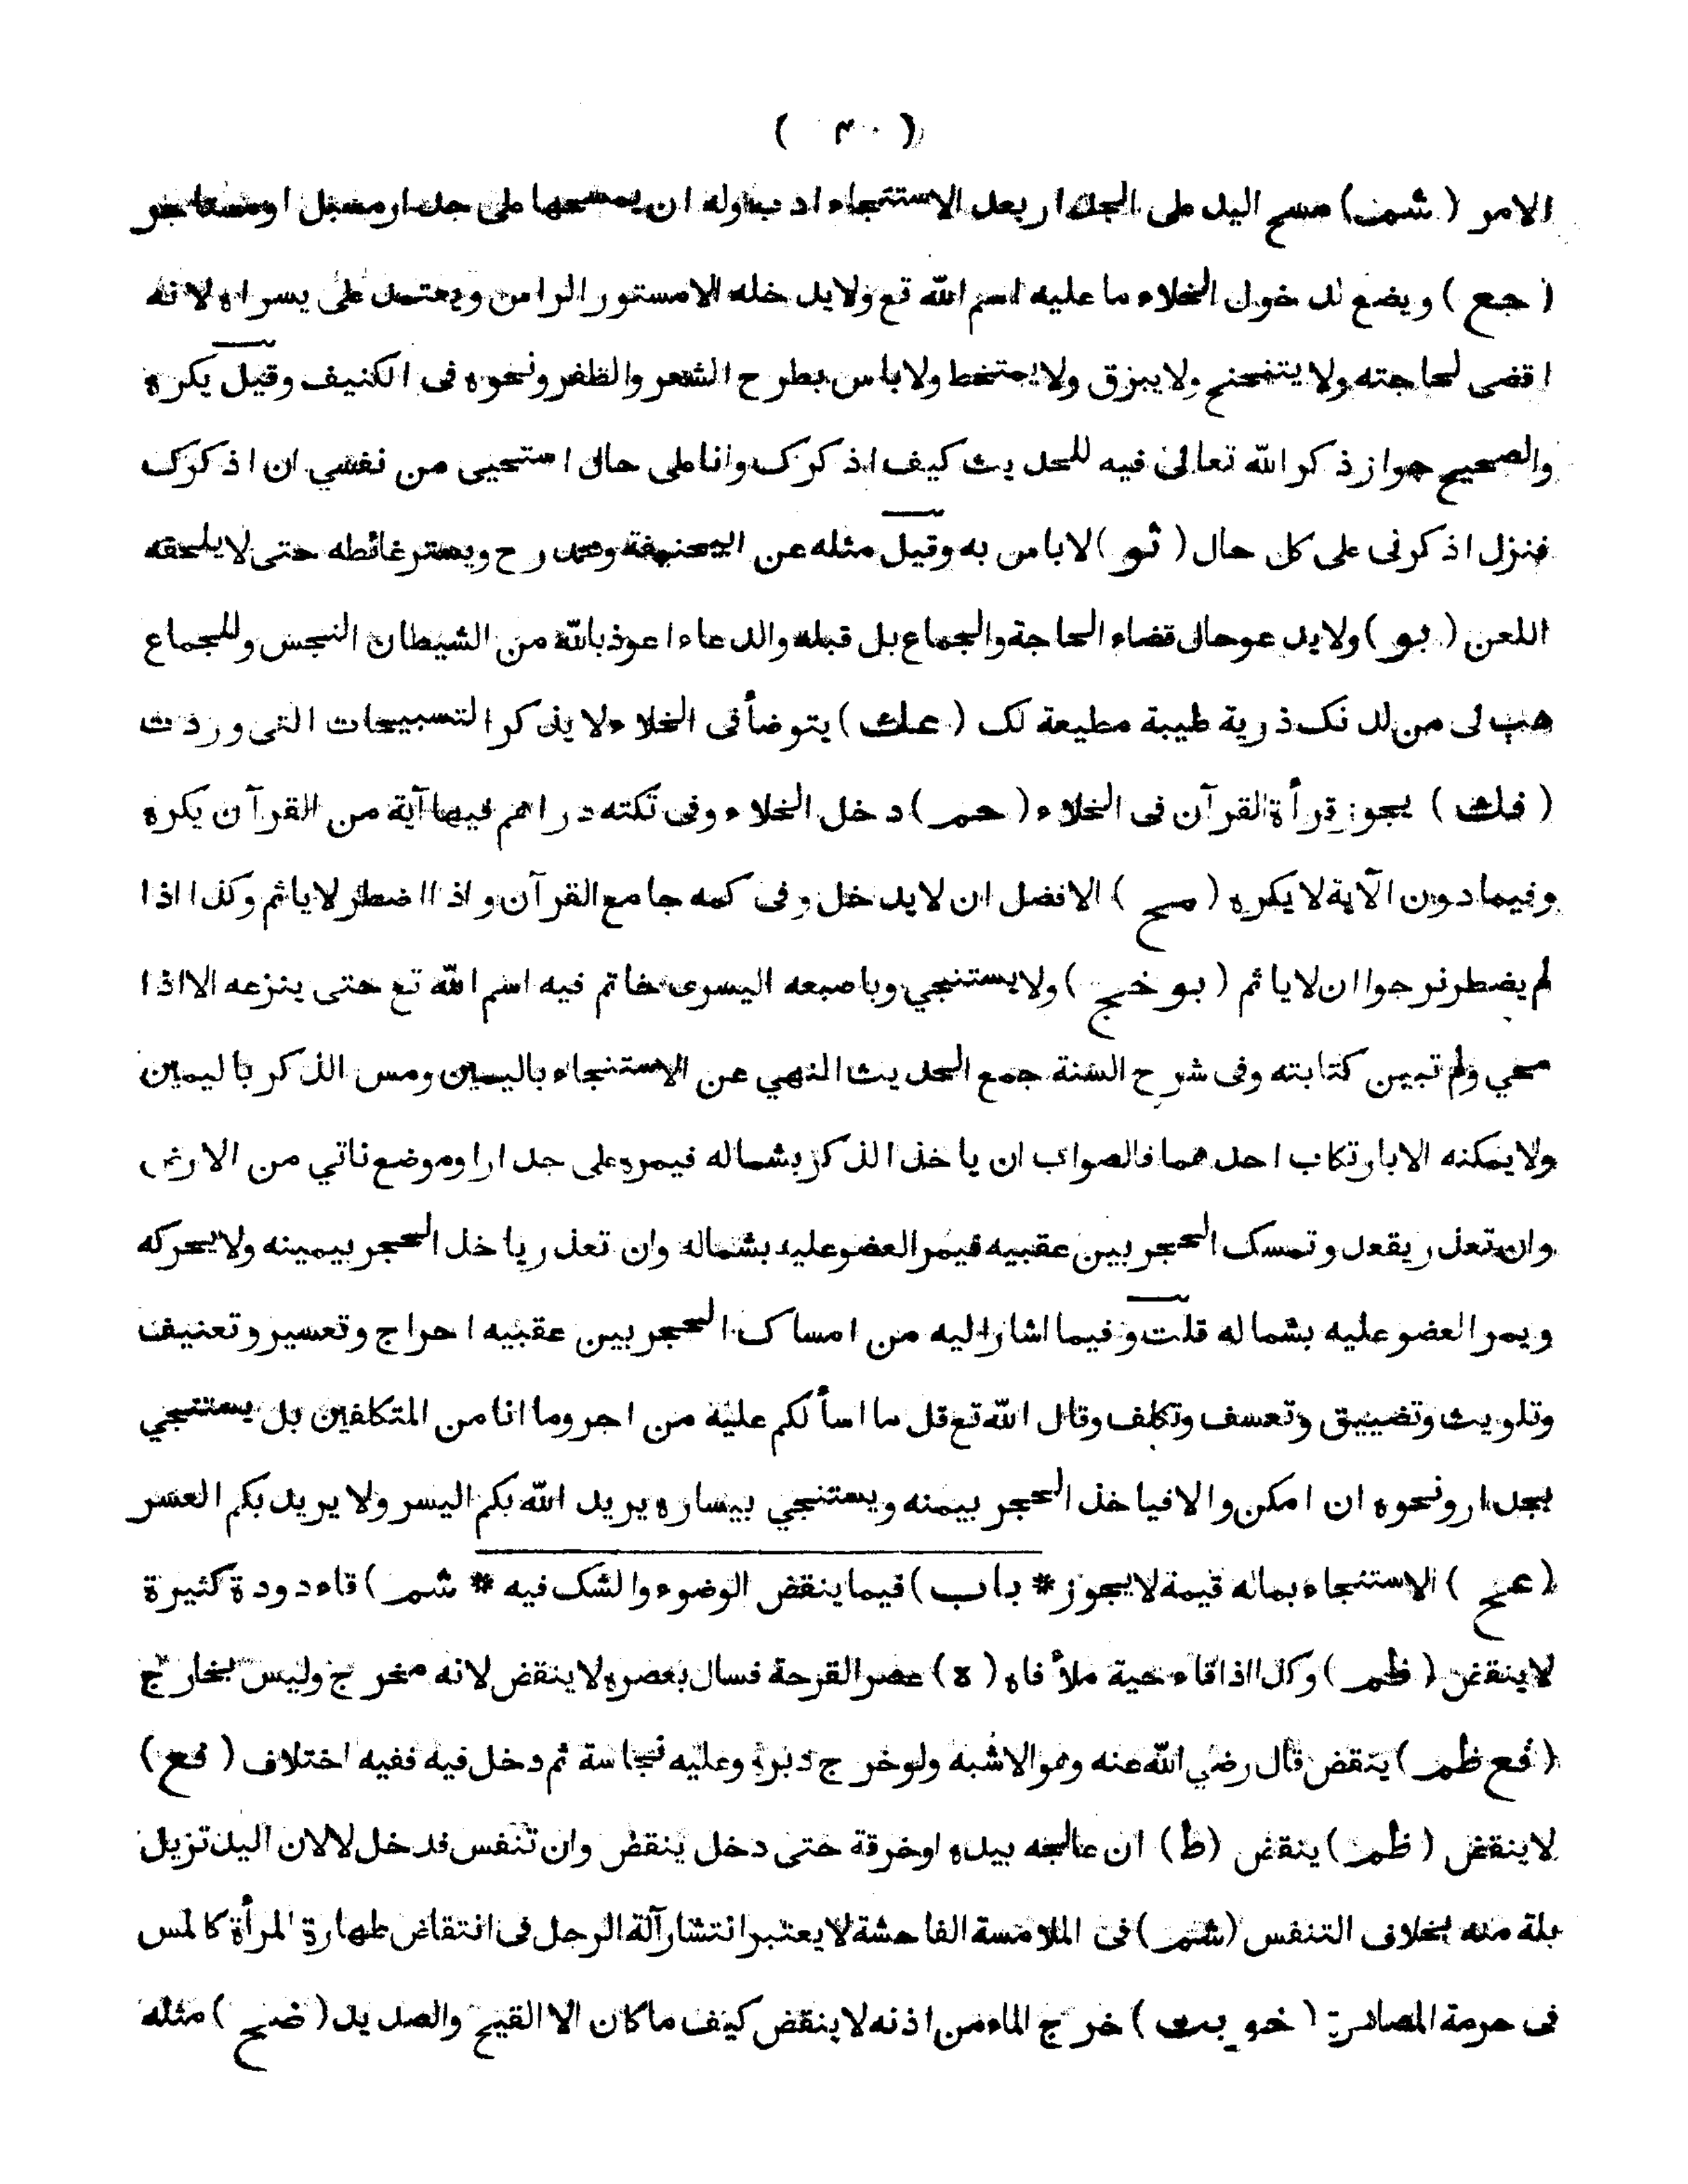 ( ٣٠ )
الامر ( شمـ ) مسح اليد على الجدار بعد الاستنجاء ادب وله ان يمسحها على جدار مسبل او مستاجر
( جع ) ويضع لدخول الخلاء ما عليه اسم الله تع ولا يدخله الا مستور الراس ويعتمد على يسراه لانه
اقضى لحاجته ولا يتنحنح ولا يبزق ولا يمتخط ولا باس بطرح الشعر والظفر ونحوه فى الكنيف وقيل يكره
والصحيح جواز ذكر الله تعالى فيه للحديث كيف اذكرك وانا على حال استحيى من نفسي ان اذكرك
فنزل اذكرنى على كل حال ( ثو ) لا باس به وقيل مثله عن ابيحنيفة ومحمد رح ويستر غائطه حتى لا يلحقه
اللعن ( بو ) ولا يدعو حال قضاء الحاجة والجماع بل قبله والدعاء اعوذ بالله من الشيطان النجس وللجماع
هب لى من لدنك ذرية طيبة مطيعة لك ( عك ) يتوضأ فى الخلاء لا يذكر التسبيحات التى وردت
( فك ) يجوز قرأة القرآن فى الخلاء ( حمـ ) دخل الخلاء وفى تكته دراهم فيها آية من القرآن يكره
وفيما دون الآية لا يكره ( سح ) الافضل ان لا يدخل وفى كمه جامع القرآن واذا اضطر لا ياثم وكذا اذا
لم يضطر نرجوا ان لا ياثم ( بو خج ) ولا يستنجي وباصبعه اليسرى خاتم فيه اسم الله تع حتى ينزعه الا اذا
محي ولم تبين كتابته وفى شرح السنة جمع الحديث النهي عن الاستنجاء باليمين ومس الذكر باليمين
ولا يمكنه الا بارتكاب احدهما فالصواب ان ياخذ الذكر بشماله فيمره على جدار او موضع ناتي من الارض
وان تعذر يقعد وتمسك الحجر بين عقبيه فيمر العضو عليه بشماله وان تعذر ياخذ الحجر بيمينه ولا يحركه
ويمر العضو عليه بشماله قلت وفيما اشار اليه من امساك الحجر بين عقبيه احراج وتعسير وتعنيف
وتلويث وتضييق وتعسف وتكلف وقال الله تع قل ما اسألكم عليه من اجر وما انا من المتكلفين بل يستنجي
بجدار ونحوه ان امكن والا فياخذ الحجر بيمنه ويستنجي بيساره يريد الله بكم اليسر ولا يريد بكم العسر
( عح ) الاستنجاء بماله قيمة لا يجوز * باب ) فيما ينقض الوضوء والشك فيه * شمـ ) قاء دودة كثيرة
لا ينقض ( ظمـ ) وكذا اذا قاء حية ملأ فاه ( ه ) عصر القرحة فسال بعصره لا ينقض لانه مخرج وليس بخارج
( فع ظمـ ) ينقض قال رضي الله عنه وهو الاشبه ولو خرج دبره وعليه نجاسة ثم دخل فيه ففيه اختلاف ( فع )
لا ينقض ( ظمـ ) ينقض ( ط ) ان عالجه بيده او خرقة حتى دخل ينقض وان تنفس فدخل لا لان اليد تزيل
بلة منه بخلاف التنفس ( شمـ ) فى الملامسة الفاحشة لا يعتبر انتشار آلة الرجل فى انتقاض طهارة المرأة كالمس
فى حرمة المصاهرة ( خو بت ) خرج الماء من اذنه لا ينقض كيف ما كان الا القيح والصديد ( ضح ) مثله